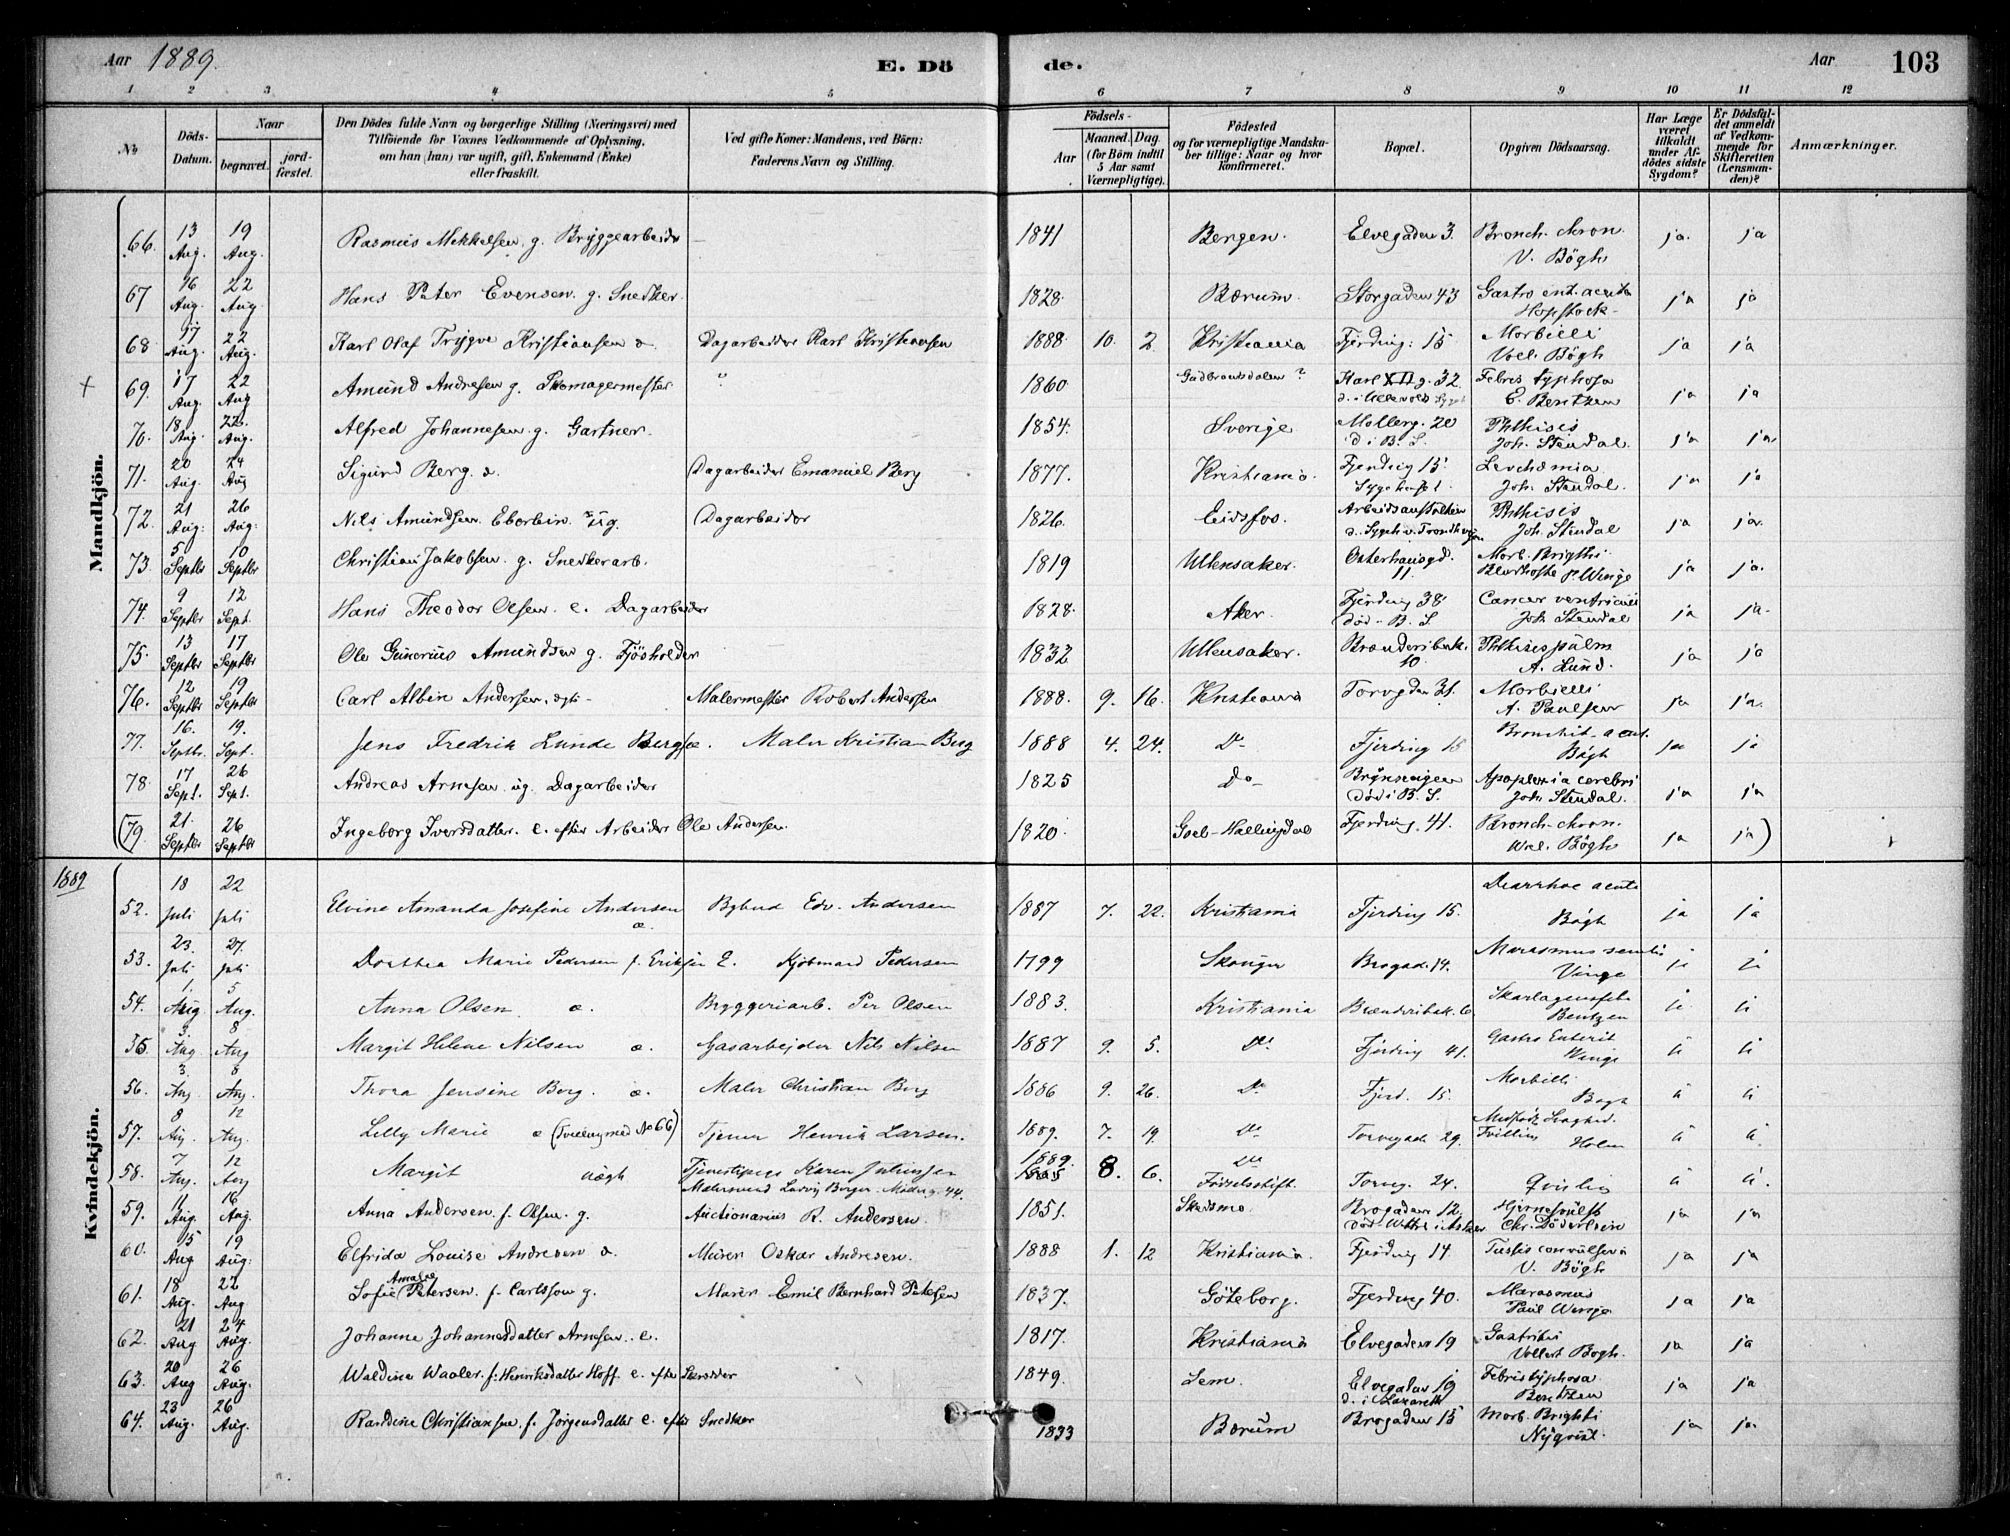 Aar 1889.
E. Dö de.
Aar 103
1 2 3 4 5 6 7 8 9 10 11 12
No
Döds-Datum.
Naar
begravet. jord-fæstet.
Den Dödes fulde Navn og borgerlige Stilling (Næringsvei) med
Tilföiende for Voxnes Vedkommende af Oplysning,
om han (hun) var ugift, gift, Enkemand (Enke)
eller fraskilt.
Ved gifte Koner: Mandens, ved Börn:
Faderens Navn og Stilling.
Födsels-
Aar Maaned. Dag.
(for Börn indtil
5 Aar samt
Værnepligtige).
Födested
og for værnepligtige Mandska-
ber tillige: Naar og hvor
konfirmeret.
Bopæl.
Opgiven Dödsaarsag.
Har Læge
været
tilkaldt
under Af-
dödes sidste
Sygdom?
Er Dödsfal-
det anmeldt
af Vedkom-
mende for
Skifteretten
(Lensman-
den)?
Anmærkninger.
Mandkjön.
66. 13 Aug. 19 Aug. Rasmus Mikkelsen g. Bryggearbeider 1841 Bergen. Elvegaden 3. Bronch. chron. V. Bögh ja. ja
67 16 Aug. 22 Aug Hans Peter Evensen g. Snedker. 1828. Bærum. Storgaden 43 Gastro ent. acuta Hopstock ja ja
68 17 Aug. 22 Aug. Karl Olaf Trygve Kristiansen æ. Dagarbeider Karl Kristiansen 1888 10. 2 Kristiania Fjerding: 15 Morbilli Voll. Bögh ja ja
+ 69. 17 Aug. 22 Aug Amund Andresen g. Skomagermester " 1860 Gudbransdalen? Karl XII g. 32. d. i Ullevold Sygeh Febris typhosa E. Bentzen ja ja
70. 18 Aug. 22. Aug. Alfred Johannesen g. Gartner. 1854. Sverige Mollerg. 20 d i B. S. Phthisis Joh. Stendal ja ja
71. 20 Aug. 24 Aug Sigurd Berg æ. Dagarbeider Emanuel Berg 1877. Kristiania. Fjerding 15. Sygehuset Levchæmia Joh. Stendal. ja ja
72. 21 Aug. 26 Aug. Nils Amundsen Eborbin ug. Dagarbeider 1826. Eidsfos. Arbeidsanstalten d. Sygeh v. Trondhvejen Phthisis Joh. Stendal ja ja.
73. 5 Septbr 10 Septbr Christian Jakobsen g. Snedkerarb. 1819 Ullensaker. Osterhausgd. 11. Morb. Brigthi Blodhoste P Winge ja ja.
74. 9 Septbr 12 Sept. Hans Theodor Olsen. e. Dagarbeider 1828. Aker. Fjerding 38 död i B. S. Cancer ventriculi Joh Stendal ja ja.
75. 13 Septbr 17 Septbr Ole Gunerius Amundsen g. Fjösholder 1832 Ullensaker. Brænderibak. 10. Phthisis pulm A. Lund. ja ja
76. 12 Septbr 19 Septbr Carl Albin Andersen, ægte Malermester Robert Andersen 1888. 9. 16. Kristiania Torvgden 31. Morbilli A. Paulsen ja ja.
77. 16. Septbr. 19. Sept. Jens Fredrik Lunde Berg æ. Maler Kristian Berg 1888 4. 24. Do Fjerding 15 Bronchit. acut. Bögh ja ja
78. 17 Sept. 26 Sept. Andreas Arnesen ug. Dagarbeider 1825 Do Brynsengen död i B. S. Apoplexia cerebri Joh. Stendal. ja ja
(79. 21. Septbr 26 Septbr Ingeborg Iversdatter. e. efter Arbeider Ole Andersen. 1820. Goel-Hallingdal Fjerding. 41. Bronch. chron. Vol. Bögh ja ja)
1889
Kvindekjön.
52. 18 Juli 22 Juli Elvine Amanda Josefine Andersen æ. Bybud Edv. Andersen 1887 7. 22. Kristiania Fjerding 15. Diarrhoe acut. Bögh ja ja
53. 23. Juli 27. Juli Dorthea Marie Pedersen f. Eriksen E. Kjöbmand Pedersen 1799 Skouger Brogad. 14. Marasmus senilis Vinge ja ja
54. 1. Aug 5 Aug. Anna Olsen æ. Bryggeriarb. Per Olsen 1883. Kristiania Brænderibak. 6 Skarlagensfeb. Bentzen
55. 3. Aug 8 Aug Margit Helene Nilsen æ. Gasarbejder Nils Nilsen 1887 9. 5. Do Fjerding 41. Gastro Enterit Winge
56. 3. Aug. 8 Aug. Thora Jensine Berg. æ. Maler Christian Berg 1886 9. 26. Do Fjerd. 15. Morbilli Bögh
57. 8 Aug. 12 Aug. Lilly Marie æ (Tvilling med No 66) Tjener Henrik Larsen. 1889. 7. 19. Do Torvegade 29. Medfödt Svaghed. Tvilling Holm
58. 7 Aug. 12 Aug Margit uægte Tjenestepige Karen Juliussen Malersvend Ludvig Borger. Möllerg. 44. 1889. 8. 6. Do Födselsstift. Torveg. 24. Qvisling
59. 11 Aug. 16 Aug. Anna Andersen f. Olsen g. Auctionarius R. Andersen. 1851. Skedsmo. Brogaden 12. död Vettre i Asker Hjernesvulst Chr. Döderlein ja ja
60. 15 Aug 19 Aug. Elfrida Louise Andresen æ. Murer Oskar Andresen. 1888 1. 12 Kristiania. Fjerding 14 Tussis convulsiva V. Bögh ja ja
61. 18 Aug. 22 Aug Sofie Amalie Petersen f. Carlsson g. Murer Emil Bernhard Petersen 1837. Göteborg. Fjerding 40. Marasmus Paul Winge ja ja
62. 21 Aug 24 Aug. Johanne Johannesdatter Arnesen. e. 1817. Kristiania Elvegaden 19 Gastritis Vollert Bögh. ja ja
63. 20 Aug 26 Aug. Waldine Waaler. f. Henriksdatter Hoff e. efter Skrædder 1849. Sem. Elvegaden 19 d. i Lazareth Febris typhosa Bentzen ja ja
64. 23 Aug. 26 Aug. Randine Christiansen f. Jörgensdatter e. efter Snedker 1833 Bærum Brogaden 15 Morb. Brighti Nyqvist. ja ja.